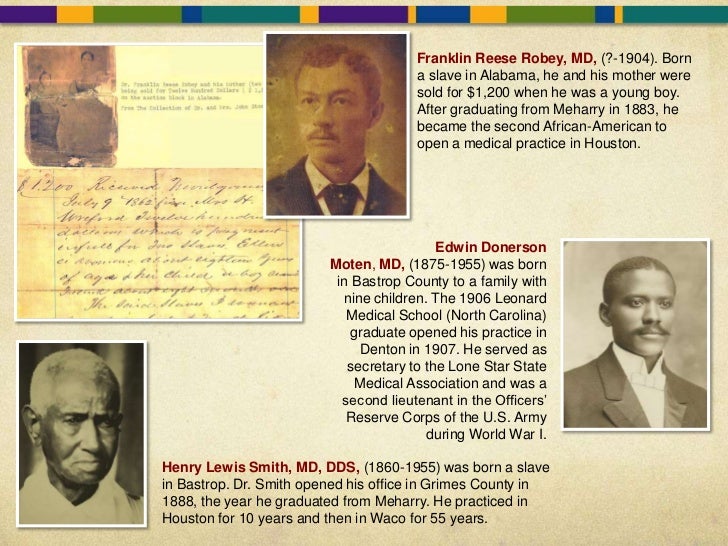 Dr. Franklin Reese Robey and his mother (two
being sold for Twelve Hundred Dollars ( $ 1,2
on the auction block in Alabama.
From The Collection of Dr. and Mrs. John
$1200 Received Montgomery
July 9 1862 from Mrs H.
Wreford Twelve hundred
dollars which is payment
in full for Two Slaves Ellen
a woman about eighteen years
of age & her child a boy named
about eight
The said Slaves I warrant
Franklin Reese Robey, MD, (?-1904). Born
a slave in Alabama, he and his mother were
sold for $1,200 when he was a young boy.
After graduating from Meharry in 1883, he
became the second African-American to
open a medical practice in Houston.
Edwin Donerson
Moten, MD, (1875-1955) was born
in Bastrop County to a family with
nine children. The 1906 Leonard
Medical School (North Carolina)
graduate opened his practice in
Denton in 1907. He served as
secretary to the Lone Star State
Medical Association and was a
second lieutenant in the Officers’
Reserve Corps of the U.S. Army
during World War I.
Henry Lewis Smith, MD, DDS, (1860-1955) was born a slave
in Bastrop. Dr. Smith opened his office in Grimes County in
1888, the year he graduated from Meharry. He practiced in
Houston for 10 years and then in Waco for 55 years.